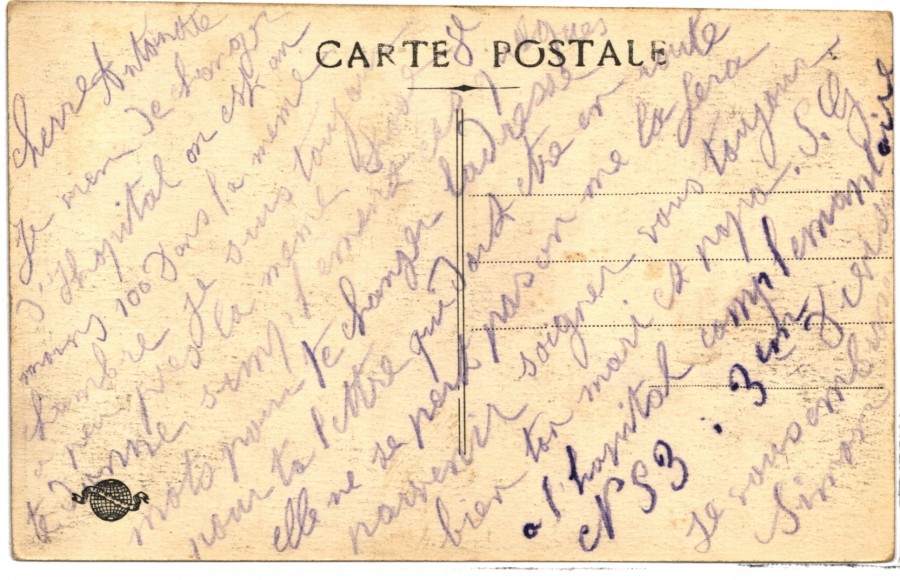 CARTE POSTALE
Chere Antoinette
Je vien de changer
d'Hopital on est au
moins 100 dans la meme
chambre je suis toujours
a peu pres la meme chose je
te donne simplement ces quelques
mots pour te changer ladresse
pour ta lettre qui doit etre en route
elle ne se pert pas on me la fera
parvenir soigner vous toujours
bien ton mari et papa. S. G
a l'hopital complementaire
N 53. 3em
Je vous embrasse
Simon